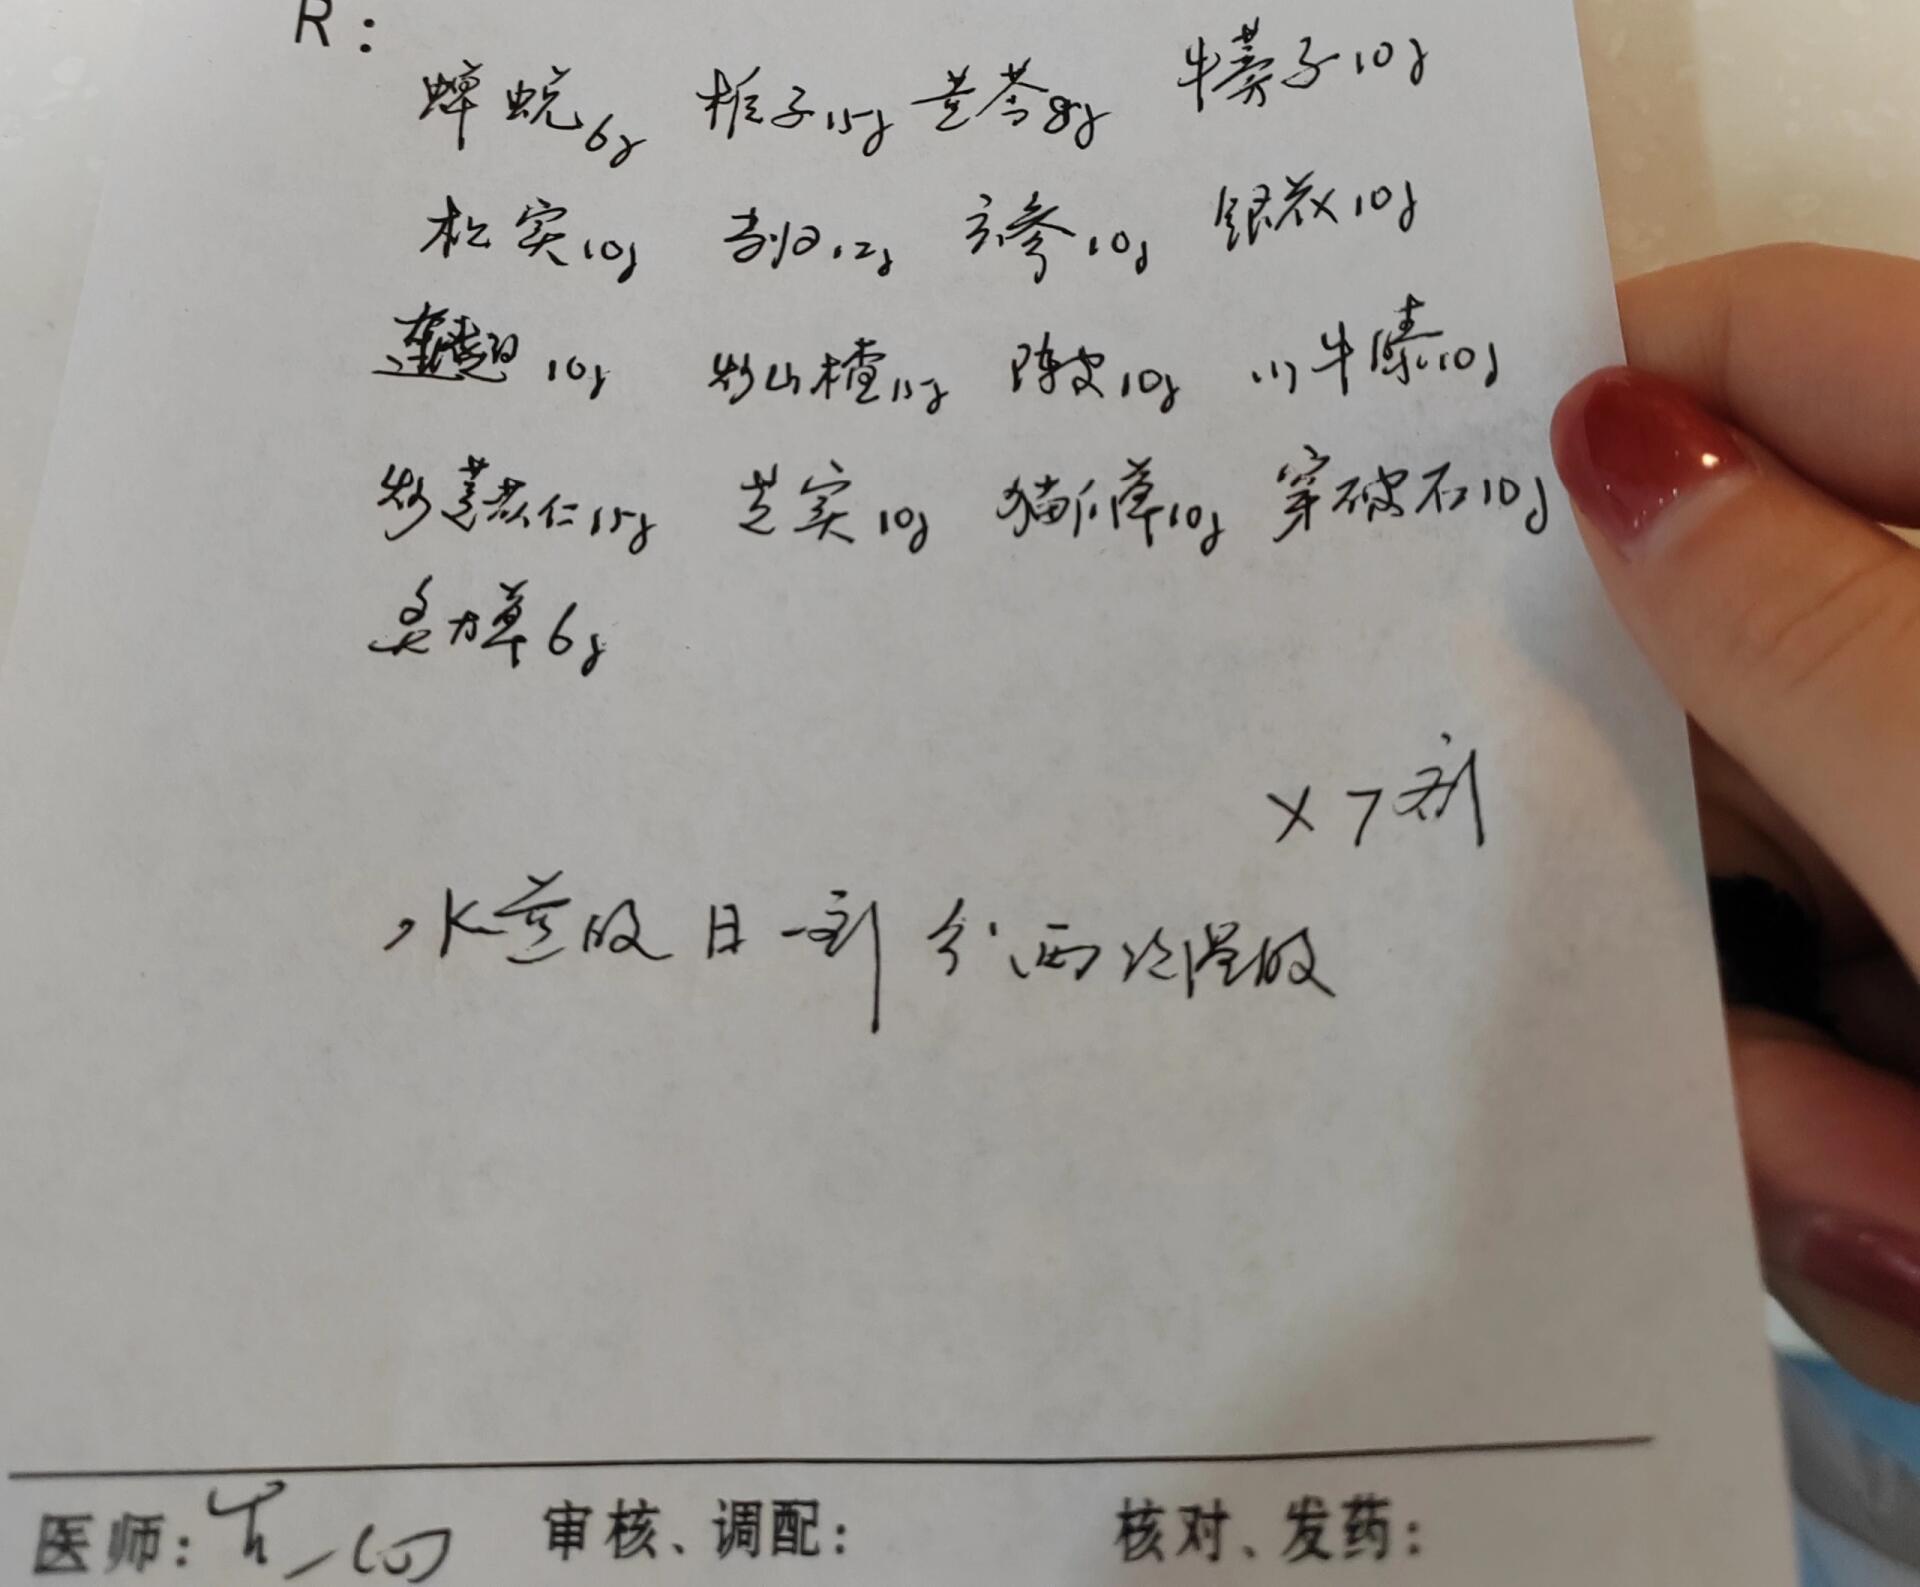 R:
蝉蜕6g 栀子15g 黄芩8g 牛蒡子10g
枳实10g 当归12g 玄参10g 银花10g
连翘10g 炒山楂15g 陈皮10g 川牛膝10g
炒薏苡仁15g 芡实10g 猫爪草10g 穿破石10g
炙甘草6g
×7剂
水煎服 日一剂 分两次温服
医师: 审核、调配: 核对、发药: